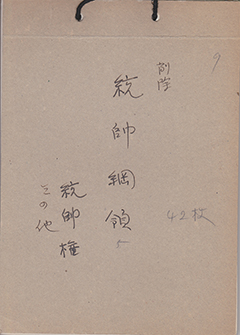 9
削除
統帥綱領
42枚
統帥権
その他